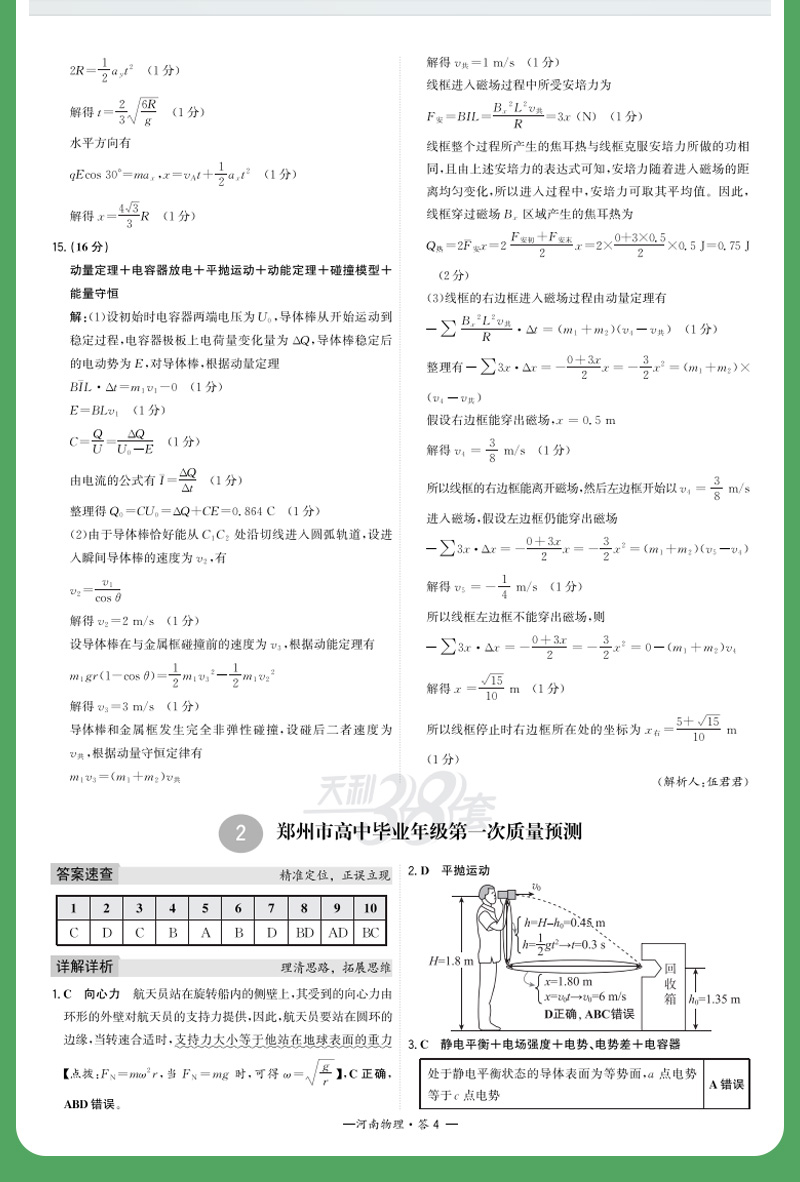 2R=\frac{1}{2}a_yt² （1 分）
解得 t=\frac{2}{3}\sqrt{\frac{6R}{g}} （1 分）
水平方向有
qEcos 30°=ma_x,x=v_At+\frac{1}{2}a_xt² （1 分）
解得 x=\frac{4\sqrt{3}}{3}R （1 分）
15.(16 分)
动量定理＋电容器放电＋平抛运动＋动能定理＋碰撞模型＋
能量守恒
解:(1)设初始时电容器两端电压为 U₀,导体棒从开始运动到
稳定过程,电容器极板上电荷量变化量为 ΔQ,导体棒稳定后
的电动势为 E,对导体棒,根据动量定理
B\bar{I}L·Δt=m₁v₁-0 （1 分）
E=BLv₁ （1 分）
C=\frac{Q}{U}=\frac{ΔQ}{U₀-E} （1 分）
由电流的公式有 \bar{I}=\frac{ΔQ}{Δt} （1 分）
整理得 Q₀=CU₀=ΔQ+CE=0.864 C （1 分）
(2)由于导体棒恰好能从 C₁C₂ 处沿切线进入圆弧轨道,设进
入瞬间导体棒的速度为 v₂,有
v₂=\frac{v₁}{cos θ}
解得 v₂=2 m/s （1 分）
设导体棒在与金属框碰撞前的速度为 v₃,根据动能定理有
m₁gr(1-cos θ)=\frac{1}{2}m₁v₃²-\frac{1}{2}m₁v₂²
解得 v₃=3 m/s （1 分）
导体棒和金属框发生完全非弹性碰撞,设碰后二者速度为
v共,根据动量守恒定律有
m₁v₃=(m₁+m₂)v共
解得 v共=1 m/s （1 分）
线框进入磁场过程中所受安培力为
F安=BIL=\frac{B_x²L²v共}{R}=3x (N) （1 分）
线框整个过程所产生的焦耳热与线框克服安培力所做的功相
同,且由上述安培力的表达式可知,安培力随着进入磁场的距
离均匀变化,所以进入过程中,安培力可取其平均值。因此,
线框穿过磁场 B_x 区域产生的焦耳热为
Q热=2\bar{F}安x=2\frac{F安初+F安末}{2}x=2×\frac{0+3×0.5}{2}×0.5 J=0.75 J
（2 分）
(3)线框的右边框进入磁场过程由动量定理有
-∑\frac{B_x²L²v共}{R}·Δt=(m₁+m₂)(v₄-v共) （1 分）
整理有-∑3x·Δx=-\frac{0+3x}{2}x=-\frac{3}{2}x²=(m₁+m₂)×
(v₄-v共)
假设右边框能穿出磁场,x=0.5 m
解得 v₄=\frac{3}{8} m/s （1 分）
所以线框的右边框能离开磁场,然后左边框开始以 v₄=\frac{3}{8} m/s
进入磁场,假设左边框仍能穿出磁场
-∑3x·Δx=-\frac{0+3x}{2}x=-\frac{3}{2}x²=(m₁+m₂)(v₅-v₄)
解得 v₅=-\frac{1}{4} m/s （1 分）
所以线框左边框不能穿出磁场,则
-∑3x·Δx=-\frac{0+3x}{2}=-\frac{3}{2}x²=0-(m₁+m₂)v₄
解得 x=\frac{\sqrt{15}}{10} m （1 分）
所以线框停止时右边框所在处的坐标为 x右=\frac{5+\sqrt{15}}{10} m
（1 分）
(解析人:伍君君)
天利38套
2 郑州市高中毕业年级第一次质量预测
答案速查 精准定位，正误立现
1 2 3 4 5 6 7 8 9 10
C D C B A B D BD AD BC
详解详析 理清思路，拓展思维
1. C 向心力 航天员站在旋转船内的侧壁上,其受到的向心力由
环形的外壁对航天员的支持力提供,因此,航天员要站在圆环的
边缘,当转速合适时,支持力大小等于他站在地球表面的重力
【点拨:F_N=mω²r,当 F_N=mg 时,可得 ω=\sqrt{\frac{g}{r}}】,C 正确,
ABD 错误。
2. D 平抛运动
v₀
h=H-h₀=0.45 m
h=\frac{1}{2}gt²→t=0.3 s
H=1.8 m
x=1.80 m
x=v₀t→v₀=6 m/s
D正确, ABC错误
回收箱
h₀=1.35 m
3. C 静电平衡＋电场强度＋电势、电势差＋电容器
处于静电平衡状态的导体表面为等势面,a 点电势
等于 c 点电势
A 错误
—河南物理·答 4 —